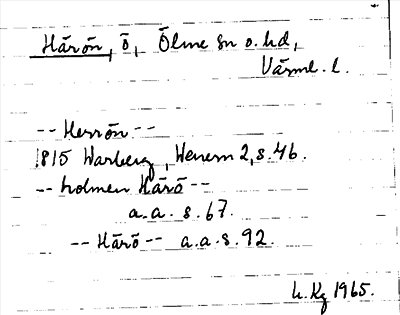 Härön, ö, Ölme sn o. hd,
Värml. l.
-- Herrön --
1815 Warberg, Wenern 2, s. 46.
-- holmen Härö --
a.a. s. 67.
-- Härö -- a.a. s. 92.
L. Kg 1965.